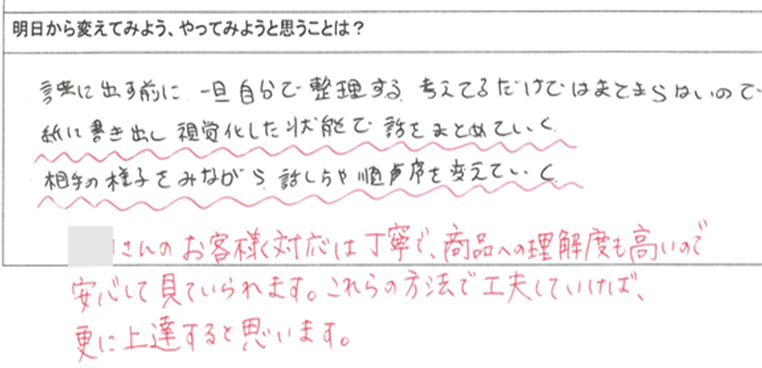 明日から変えてみよう、やってみようと思うことは？
言葉に出す前に 一旦自分で整理する 考えてるだけではまとまらないので
紙に書き出し 視覚化した状態で 話をまとめていく
相手の様子をみながら 話し方や順序を変えていく
さんのお客様対応は丁寧で、商品への理解度も高いので
安心して見ていられます。これらの方法で工夫していけば、
更に上達すると思います。